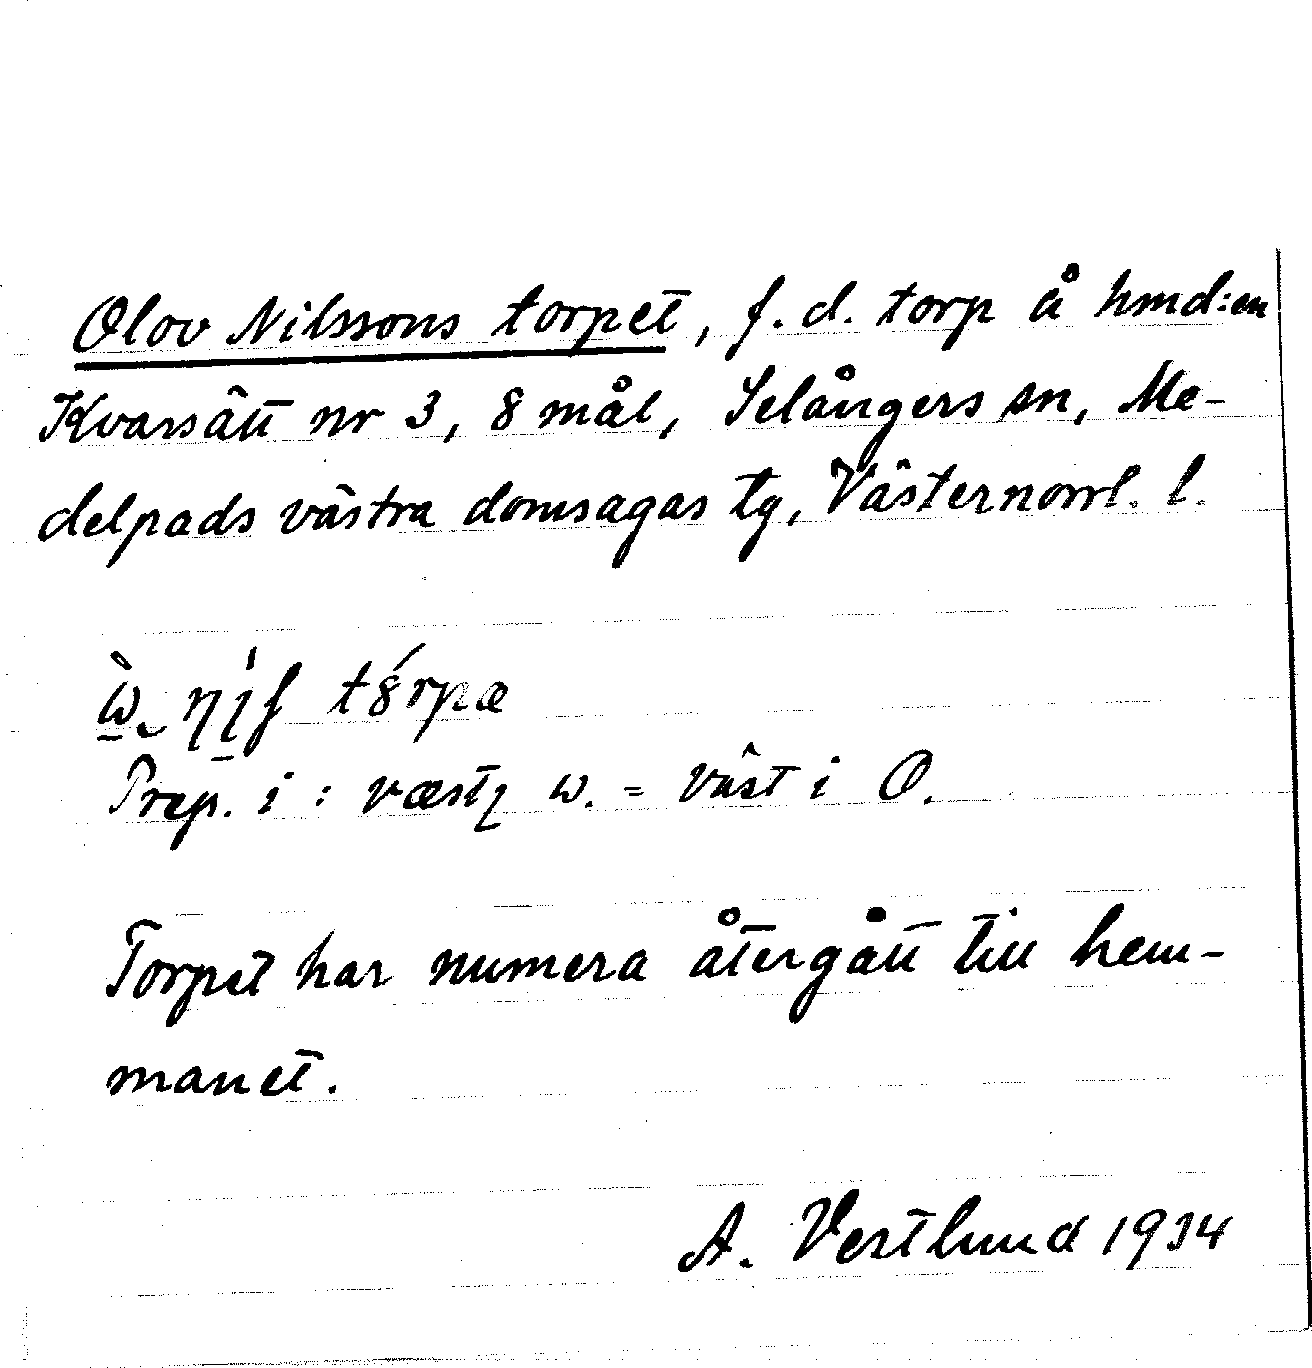 Olov Nilssons torpet, f.d. torp å hmd:en
Kvarsätt nr 3, 8 mål, Selångers sn, Me-
delpads västra domsagas tg, Västernorrl. l.
Prep. i : væstɩ ω. = väst i O.
Torpet har numera återgått till hem-
manet.
A. Vestlund 1934